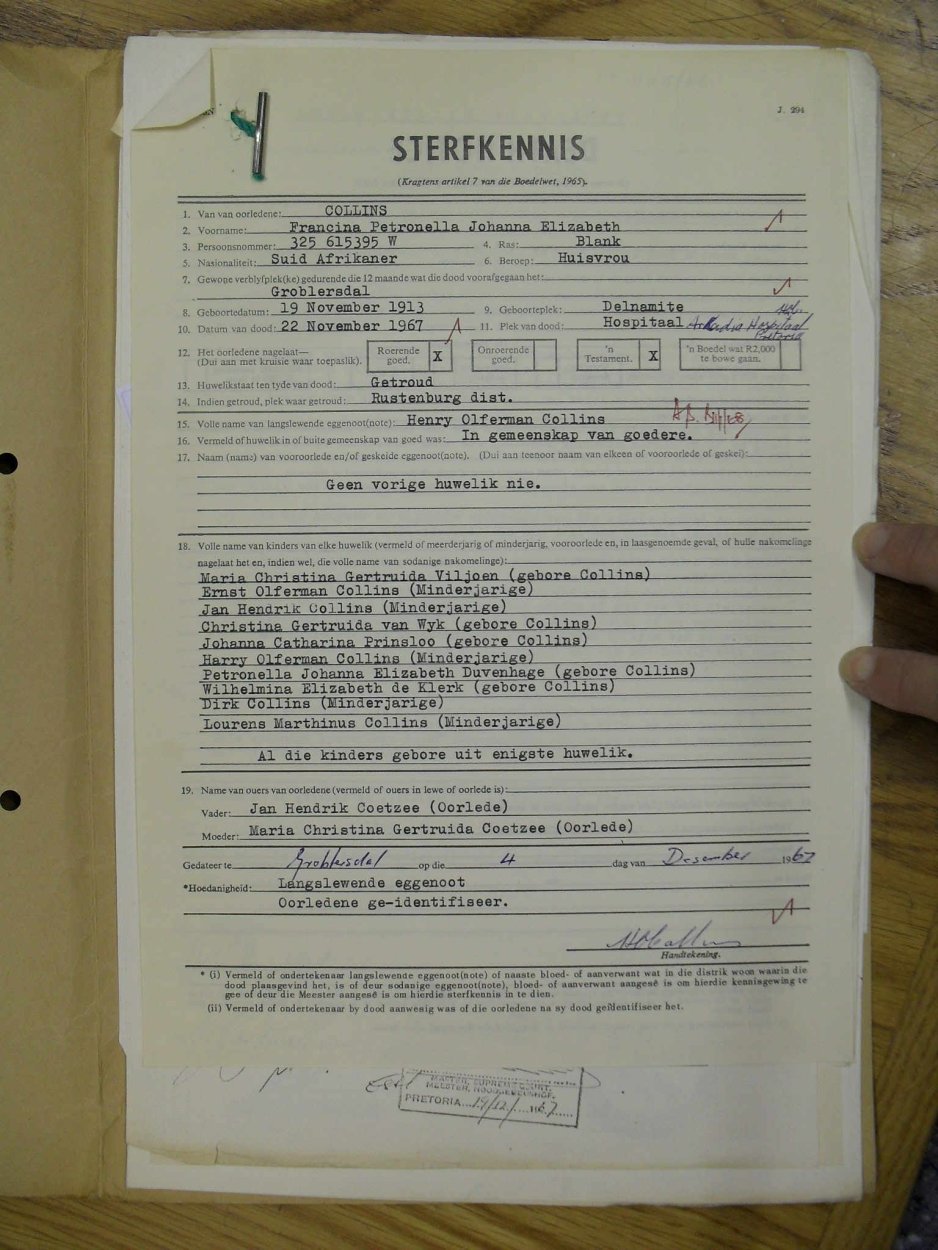 J. 294
STERFKENNIS
(Kragtens artikel 7 van die Boedelwet, 1965).
1. Van van oorledene: COLLINS
2. Voorname: Francina Petronella Johanna Elizabeth
3. Persoonsnommer: 325 615395 W 4. Ras: Blank
5. Nasionaliteit: Suid Afrikaner 6. Beroep: Huisvrou
7. Gewone verblyfplek(ke) gedurende die 12 maande wat die dood voorafgegaan het:
Groblersdal
8. Geboortedatum: 19 November 1913 9. Geboorteplek: Delnamite
10. Datum van dood: 22 November 1967 11. Plek van dood: Hospitaal Arkadia Hospitaal
Pretoria
12. Het oorledene nagelaat— Roerende goed. X Onroerende goed. 'n Testament. X 'n Boedel wat R2,000 te bowe gaan.
(Dui aan met kruisie waar toepaslik).
13. Huwelikstaat ten tyde van dood: Getroud
14. Indien getroud, plek waar getroud: Rustenburg dist.
15. Volle name van langslewende eggenoot(note): Henry Olferman Collins
16. Vermeld of huwelik in of buite gemeenskap van goed was: In gemeenskap van goedere.
17. Naam (name) van vooroorlede en/of geskeide eggenoot(note). (Dui aan teenoor naam van elkeen of vooroorlede of geskei):
Geen vorige huwelik nie.
18. Volle name van kinders van elke huwelik (vermeld of meerderjarig of minderjarig, vooroorlede en, in laasgenoemde geval, of hulle nakomelinge
nagelaat het en, indien wel, die volle name van sodanige nakomelinge):
Maria Christina Gertruida Viljoen (gebore Collins)
Ernst Olferman Collins (Minderjarige)
Jan Hendrik Collins (Minderjarige)
Christina Gertruida van Wyk (gebore Collins)
Johanna Catharina Prinsloo (gebore Collins)
Harry Olferman Collins (Minderjarige)
Petronella Johanna Elizabeth Duvenhage (gebore Collins)
Wilhelmina Elizabeth de Klerk (gebore Collins)
Dirk Collins (Minderjarige)
Lourens Marthinus Collins (Minderjarige)
Al die kinders gebore uit enigste huwelik.
19. Name van ouers van oorledene (vermeld of ouers in lewe of oorlede is):
Vader: Jan Hendrik Coetzee (Oorlede)
Moeder: Maria Christina Gertruida Coetzee (Oorlede)
Gedateer te Groblersdal op die 4 dag van Desember 1967
*Hoedanigheid: Langslewende eggenoot
Oorledene ge-identifiseer.
HOCollins
Handtekening.
* (i) Vermeld of ondertekenaar langslewende eggenoot(note) of naaste bloed- of aanverwant wat in die distrik woon waarin die
dood plaasgevind het, is of deur sodanige eggenoot(note), bloed- of aanverwant aangesê is om hierdie kennisgewing te
gee of deur die Meester aangesê is om hierdie sterfkennis in te dien.
(ii) Vermeld of ondertekenaar by dood aanwesig was of die oorledene na sy dood geïdentifiseer het.
MASTER, SUPREME COURT.
MEESTER, HOOGGEREGSHOF.
PRETORIA 19/12/ 1967